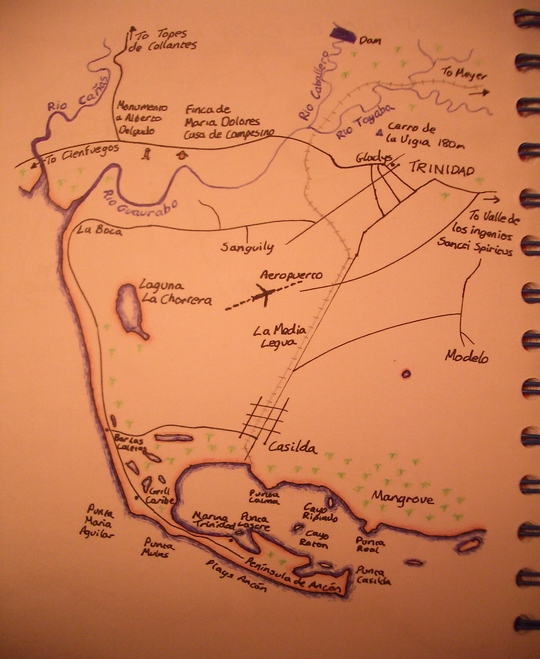 To Topes
de Collantes
Dam
Rio Caballero
To Meyer
Rio Cañas
Rio Tayaba
Monumento
a Alberto
Delgado
Finca de
Maria Dolores
Casa de Campesino
Cerro de
la Vigia 180m
To Cienfuegos
Gladys
TRINIDAD
Rio Guaurabo
To Valle de
los ingenios
Sancti Spiricus
La Boca
Sanguily
Aeropuerco
Laguna
La Chorrera
La Media
Legua
Modelo
Bar Las
Caletas
Casilda
Grill
Caribe
Punta
Maria
Aguilar
Punta
Mulas
Marina
Trinidad
Punta
Cayo
Raton
Punta
Real
Mangrove
Punta
Casilda
Peninsula de Ancón
Playa Ancón